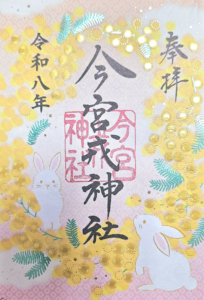 奉拝
今宮戎神社
今宮
神社
令和八年